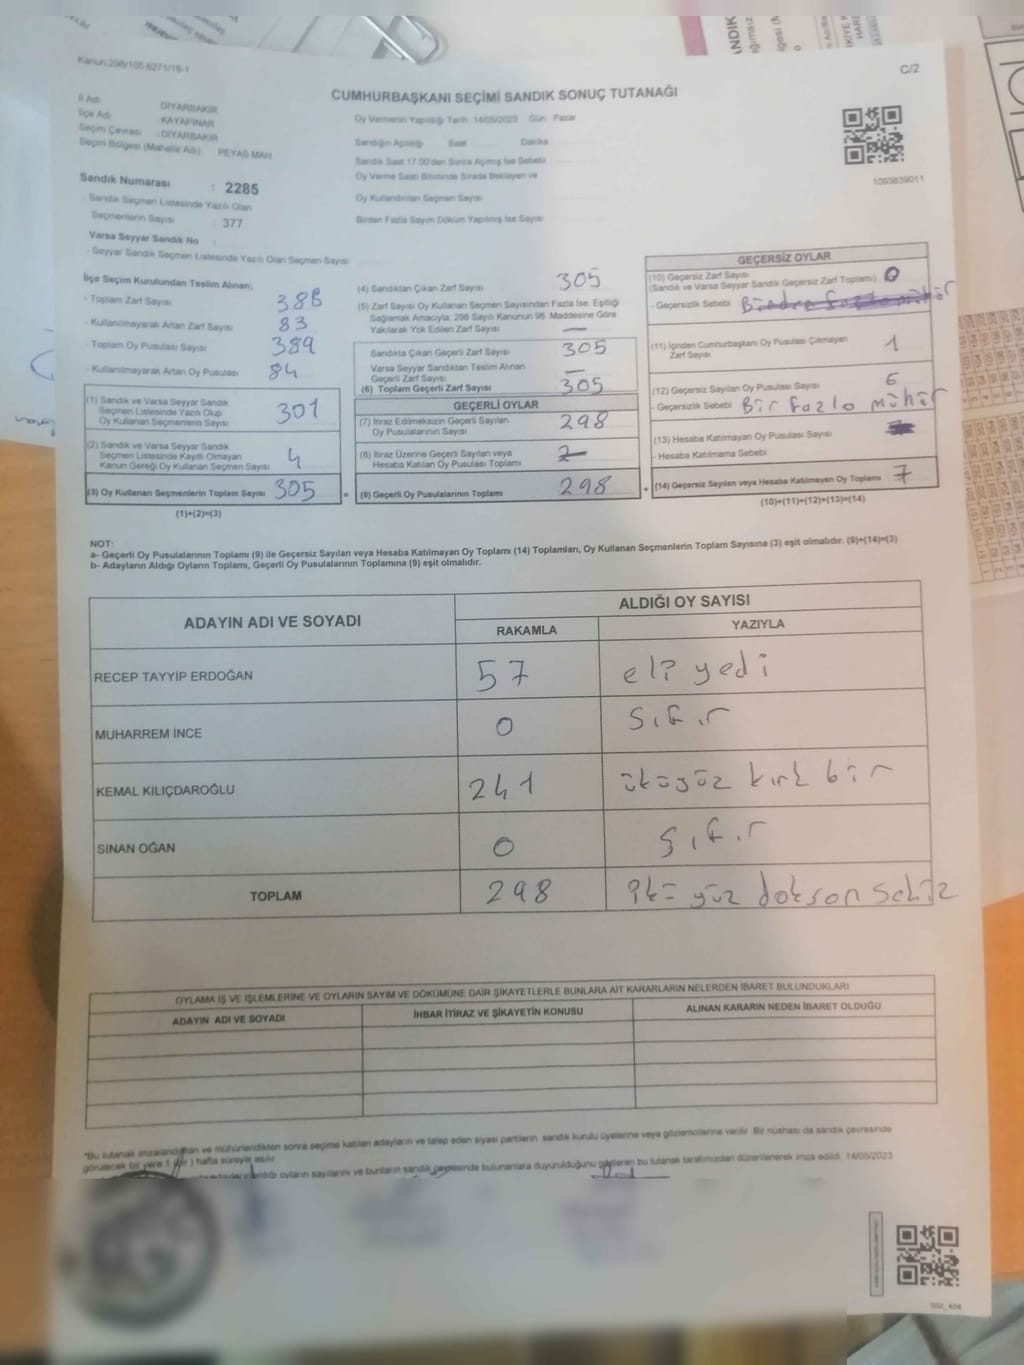 Kanun:298/105 6271/16-1
C/2
CUMHURBAŞKANI SEÇİMİ SANDIK SONUÇ TUTANAĞI
İl Adı DİYARBAKIR
İlçe Adı KAYAPINAR
Seçim Çevresi : DİYARBAKIR
Seçim Bölgesi (Mahalle Adı) PEYAS MAH
Sandık Numarası : 2285
- Sandık Seçmen Listesinde Yazılı Olan
Seçmenlerin Sayısı : 377
Varsa Seyyar Sandık No :
- Seyyar Sandık Seçmen Listesinde Yazılı Olan Seçmen Sayısı
Oy Vermenin Yapıldığı Tarih 14/05/2023 Gün Pazar
Sandığın Açıldığı Saat Dakika
Sandık Saat 17:00'den Sonra Açılmış İse Sebebi
Oy Verme Saati Bitiminde Sırada Bekleyen ve
Oy Kullandırılan Seçmen Sayısı
Birden Fazla Sayım Döküm Yapılmış İse Sayısı
1093839011
İlçe Seçim Kurulundan Teslim Alınan;
- Toplam Zarf Sayısı 388
- Kullanılmayarak Artan Zarf Sayısı 83
- Toplam Oy Pusulası Sayısı 389
- Kullanılmayarak Artan Oy Pusulası 84
(1) Sandık ve Varsa Seyyar Sandık
Seçmen Listesinde Yazılı Olup
Oy Kullanan Seçmenlerin Sayısı 301
(2) Sandık ve Varsa Seyyar Sandık
Seçmen Listesinde Kayıtlı Olmayan
Kanun Gereği Oy Kullanan Seçmen Sayısı 4
(3) Oy Kullanan Seçmenlerin Toplam Sayısı 305
(1)+(2)=(3)
(4) Sandıktan Çıkan Zarf Sayısı 305
(5) Zarf Sayısı Oy Kullanan Seçmen Sayısından Fazla İse, Eşitliği
Sağlamak Amacıyla, 298 Sayılı Kanunun 98. Maddesine Göre
Yakılarak Yok Edilen Zarf Sayısı —
Sandıkta Çıkan Geçerli Zarf Sayısı 305
Varsa Seyyar Sandıktan Teslim Alınan
Geçerli Zarf Sayısı —
(6) Toplam Geçerli Zarf Sayısı 305
GEÇERLİ OYLAR
(7) İtiraz Edilmeksizin Geçerli Sayılan
Oy Pusulalarının Sayısı 298
(8) İtiraz Üzerine Geçerli Sayılan veya
Hesaba Katılan Oy Pusulası Toplamı
= (9) Geçerli Oy Pusulalarının Toplamı 298
GEÇERSİZ OYLAR
(10) Geçersiz Zarf Sayısı
(Sandık ve Varsa Seyyar Sandık Geçersiz Zarf Toplamı) 0
- Geçersizlik Sebebi
(11) İçinden Cumhurbaşkanı Oy Pusulası Çıkmayan
Zarf Sayısı 1
(12) Geçersiz Sayılan Oy Pusulası Sayısı 6
- Geçersizlik Sebebi Bir fazla mühür
(13) Hesaba Katılmayan Oy Pusulası Sayısı
- Hesaba Katılmama Sebebi
+ (14) Geçersiz Sayılan veya Hesaba Katılmayan Oy Toplamı 7
(10)+(11)+(12)+(13)=(14)
NOT:
a- Geçerli Oy Pusulalarının Toplamı (9) ile Geçersiz Sayılan veya Hesaba Katılmayan Oy Toplamı (14) Toplamları, Oy Kullanan Seçmenlerin Toplam Sayısına (3) eşit olmalıdır. (9)+(14)=(3)
b- Adayların Aldığı Oyların Toplamı, Geçerli Oy Pusulalarının Toplamına (9) eşit olmalıdır.
ADAYIN ADI VE SOYADI ALDIĞI OY SAYISI
RAKAMLA YAZIYLA
RECEP TAYYİP ERDOĞAN 57 elli yedi
MUHARREM İNCE 0 sıfır
KEMAL KILIÇDAROĞLU 241 iküyüz kırk bir
SİNAN OĞAN 0 sıfır
TOPLAM 298 iki yüz doksan sekiz
OYLAMA İŞ VE İŞLEMLERİNE VE OYLARIN SAYIM VE DÖKÜMÜNE DAİR ŞİKAYETLERLE BUNLARA AİT KARARLARIN NELERDEN İBARET BULUNDUKLARI
ADAYIN ADI VE SOYADI İHBAR İTİRAZ VE ŞİKAYETİN KONUSU ALINAN KARARIN NEDEN İBARET OLDUĞU
"Bu tutanak imzalandıktan ve mühürlendikten sonra seçime katılan adayların ve talep eden siyasi partilerin sandık kurulu üyelerine veya gözlemcilerine verilir. Bir nüshası da sandık çevresinde
görülecek bir yere 1 (bir) hafta süreyle asılır.
aldığı oyların sayılarını ve bunların sandık çevresinde bulunanlara duyurulduğunu gösteren bu tutanak tarafımızdan düzenlenerek imza edildi. 14/05/2023